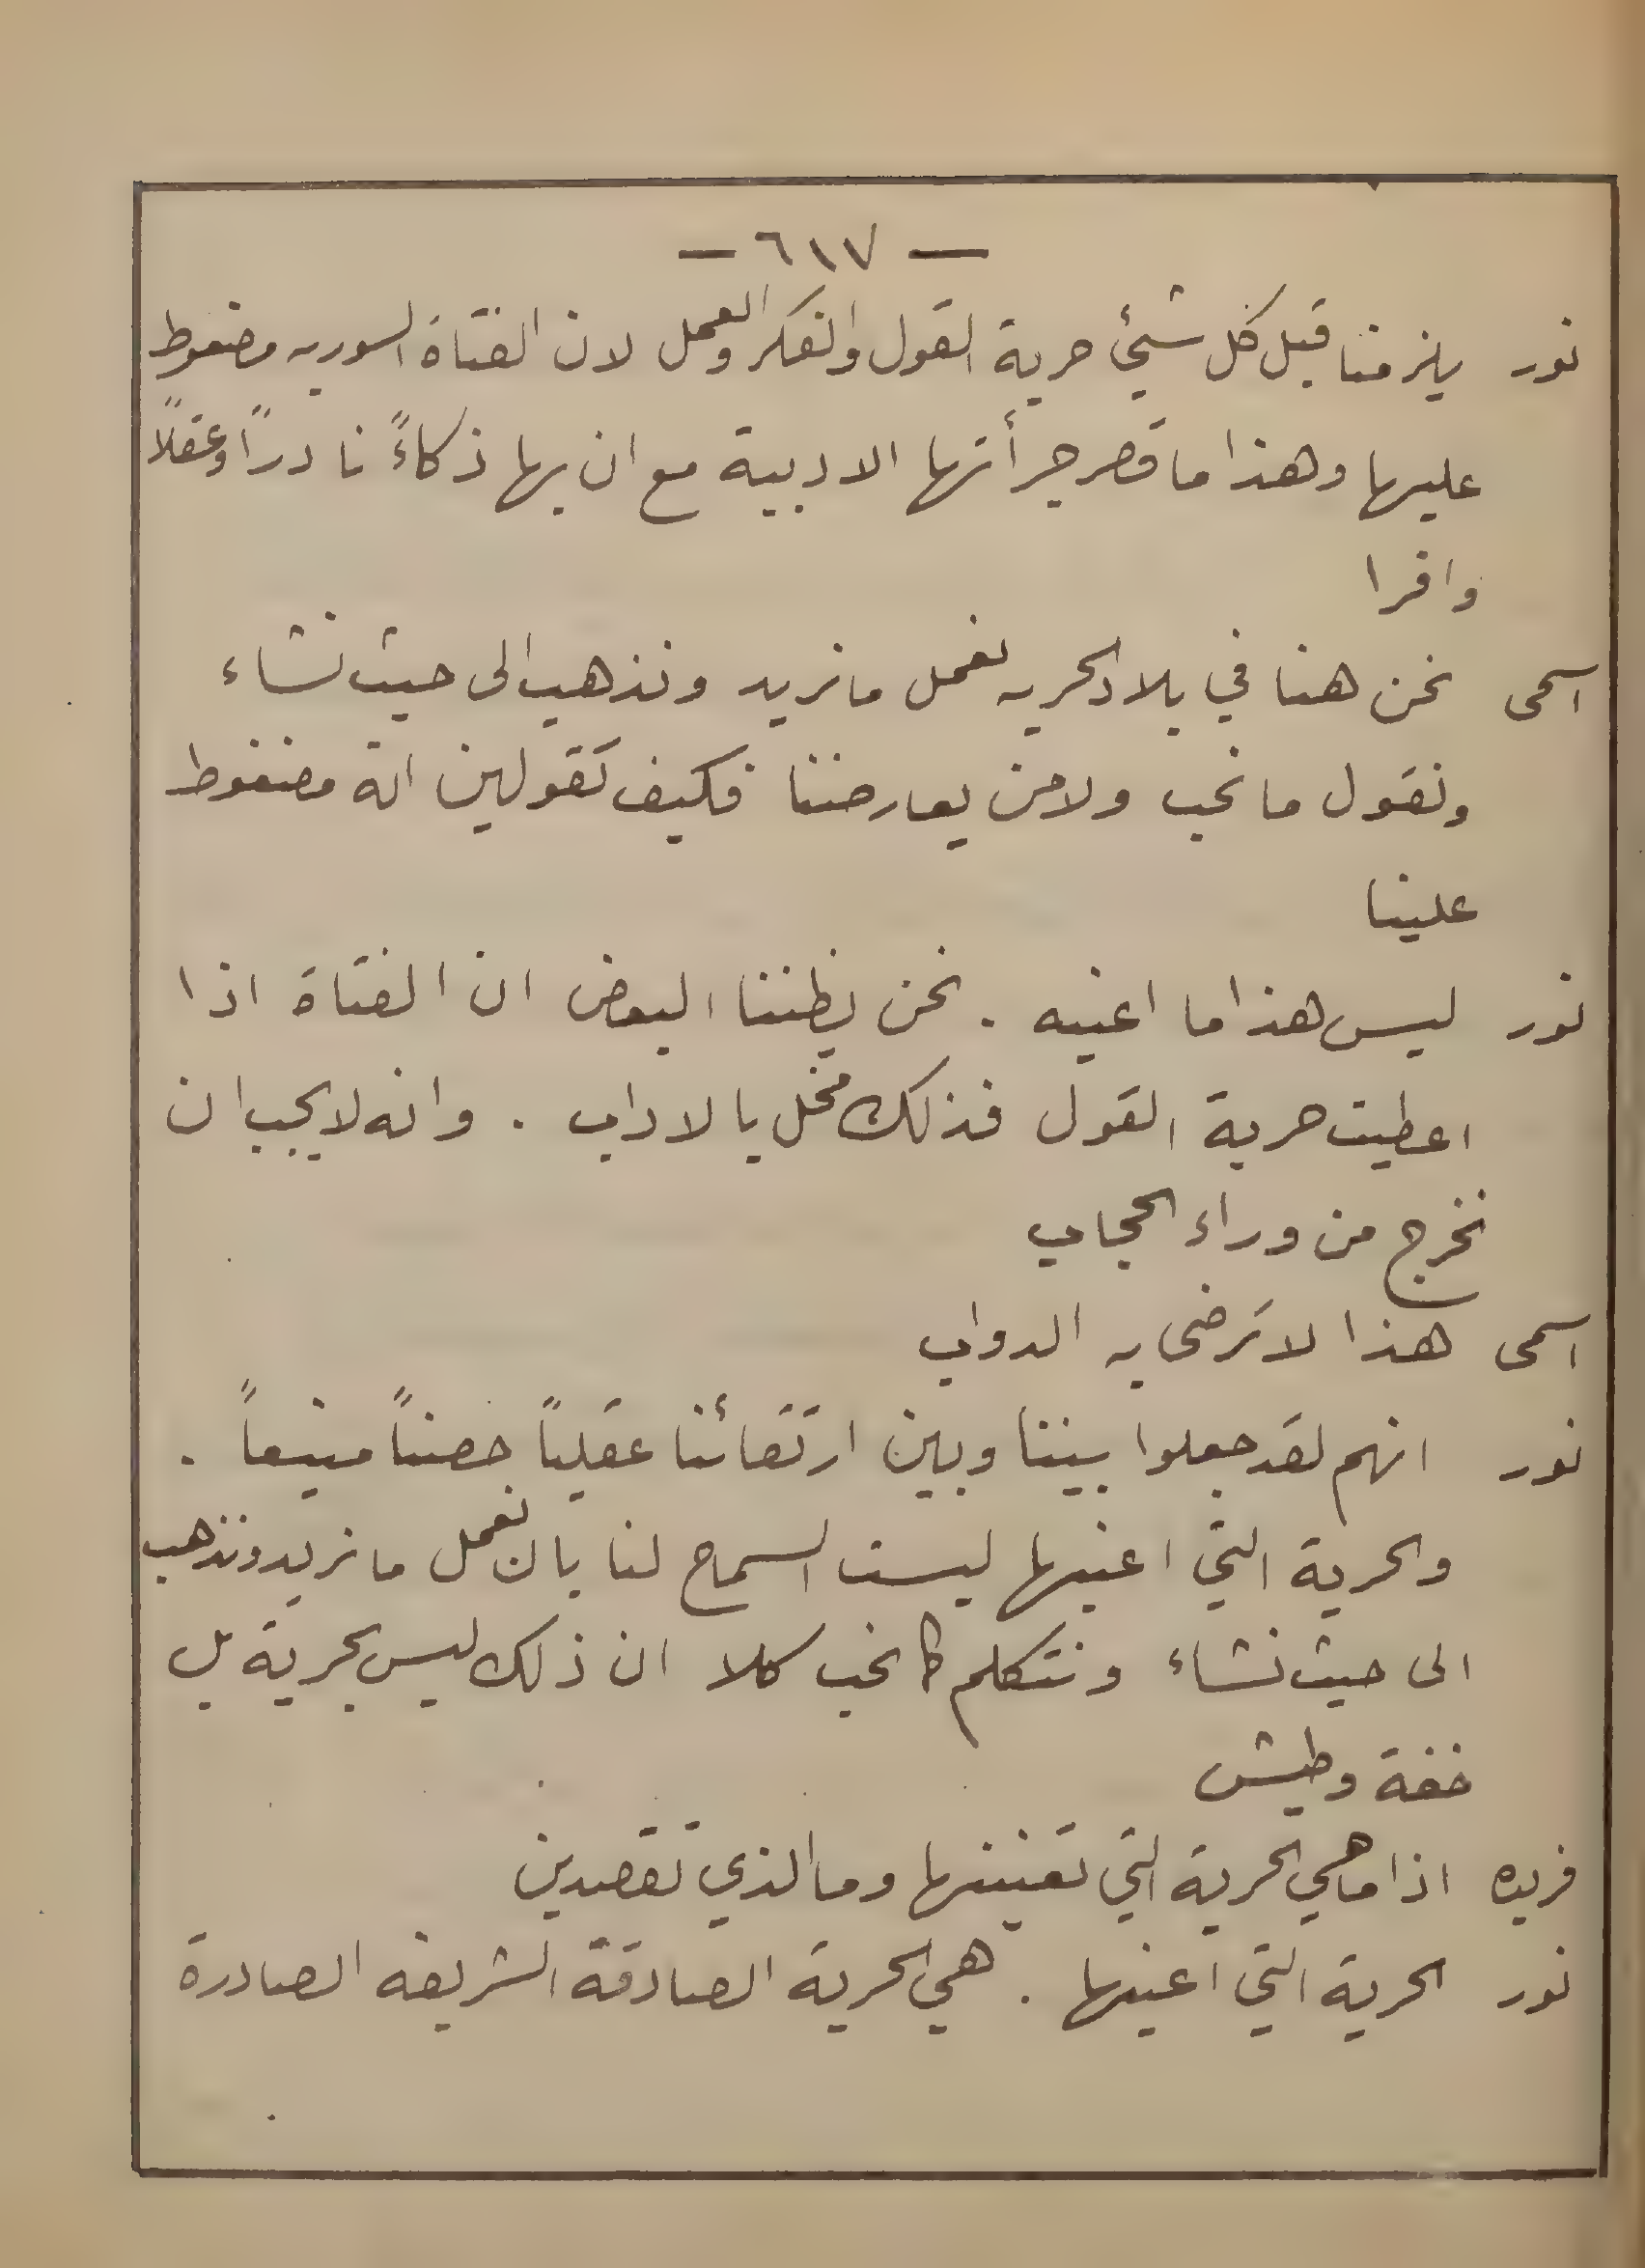 — ٦١٧ —
نور يلزمنا قبل كل شيئ حرية القول والفكر والعمل لان الفتاة السوريه مضغوط
عليها وهذا ما قصر جرأتها الادبية مع ان بها ذكاءً نادراً وعقلاً
وافرا
اسمى نحن هنا في بلاد الحريه نعمل ما نريد ونذهب الى حيث نشاء
ونقول ما نحب ولا من يعارضننا فكيف تقولين انه مضغوط
علينا
نور ليس هذا ما اعنيه . نحن يظننا البعض ان الفتاة اذا
اعطيت حرية القول فذلك مخل بالاداب . وانه لا يجب ان
نخرج من وراء الحجاب
اسمى هذا لا ترضى به الدواب
نور انهم لقد جعلوا بيننا وبين ارتقائنا عقلياً حصناً منيعاً .
والحرية التي اعنيها ليست السماح لنا بان نعمل ما نريد ونذهب
الى حيث نشاء ونتكلم كما نحب كلا ان ذلك ليس بحرية بل
خفة وطيش
فريده اذا ما هي الحرية التي تعنينها وما الذي تقصدين
نور الحرية التي اعنيها . هي الحرية الصادقة الشريفه الصادرة